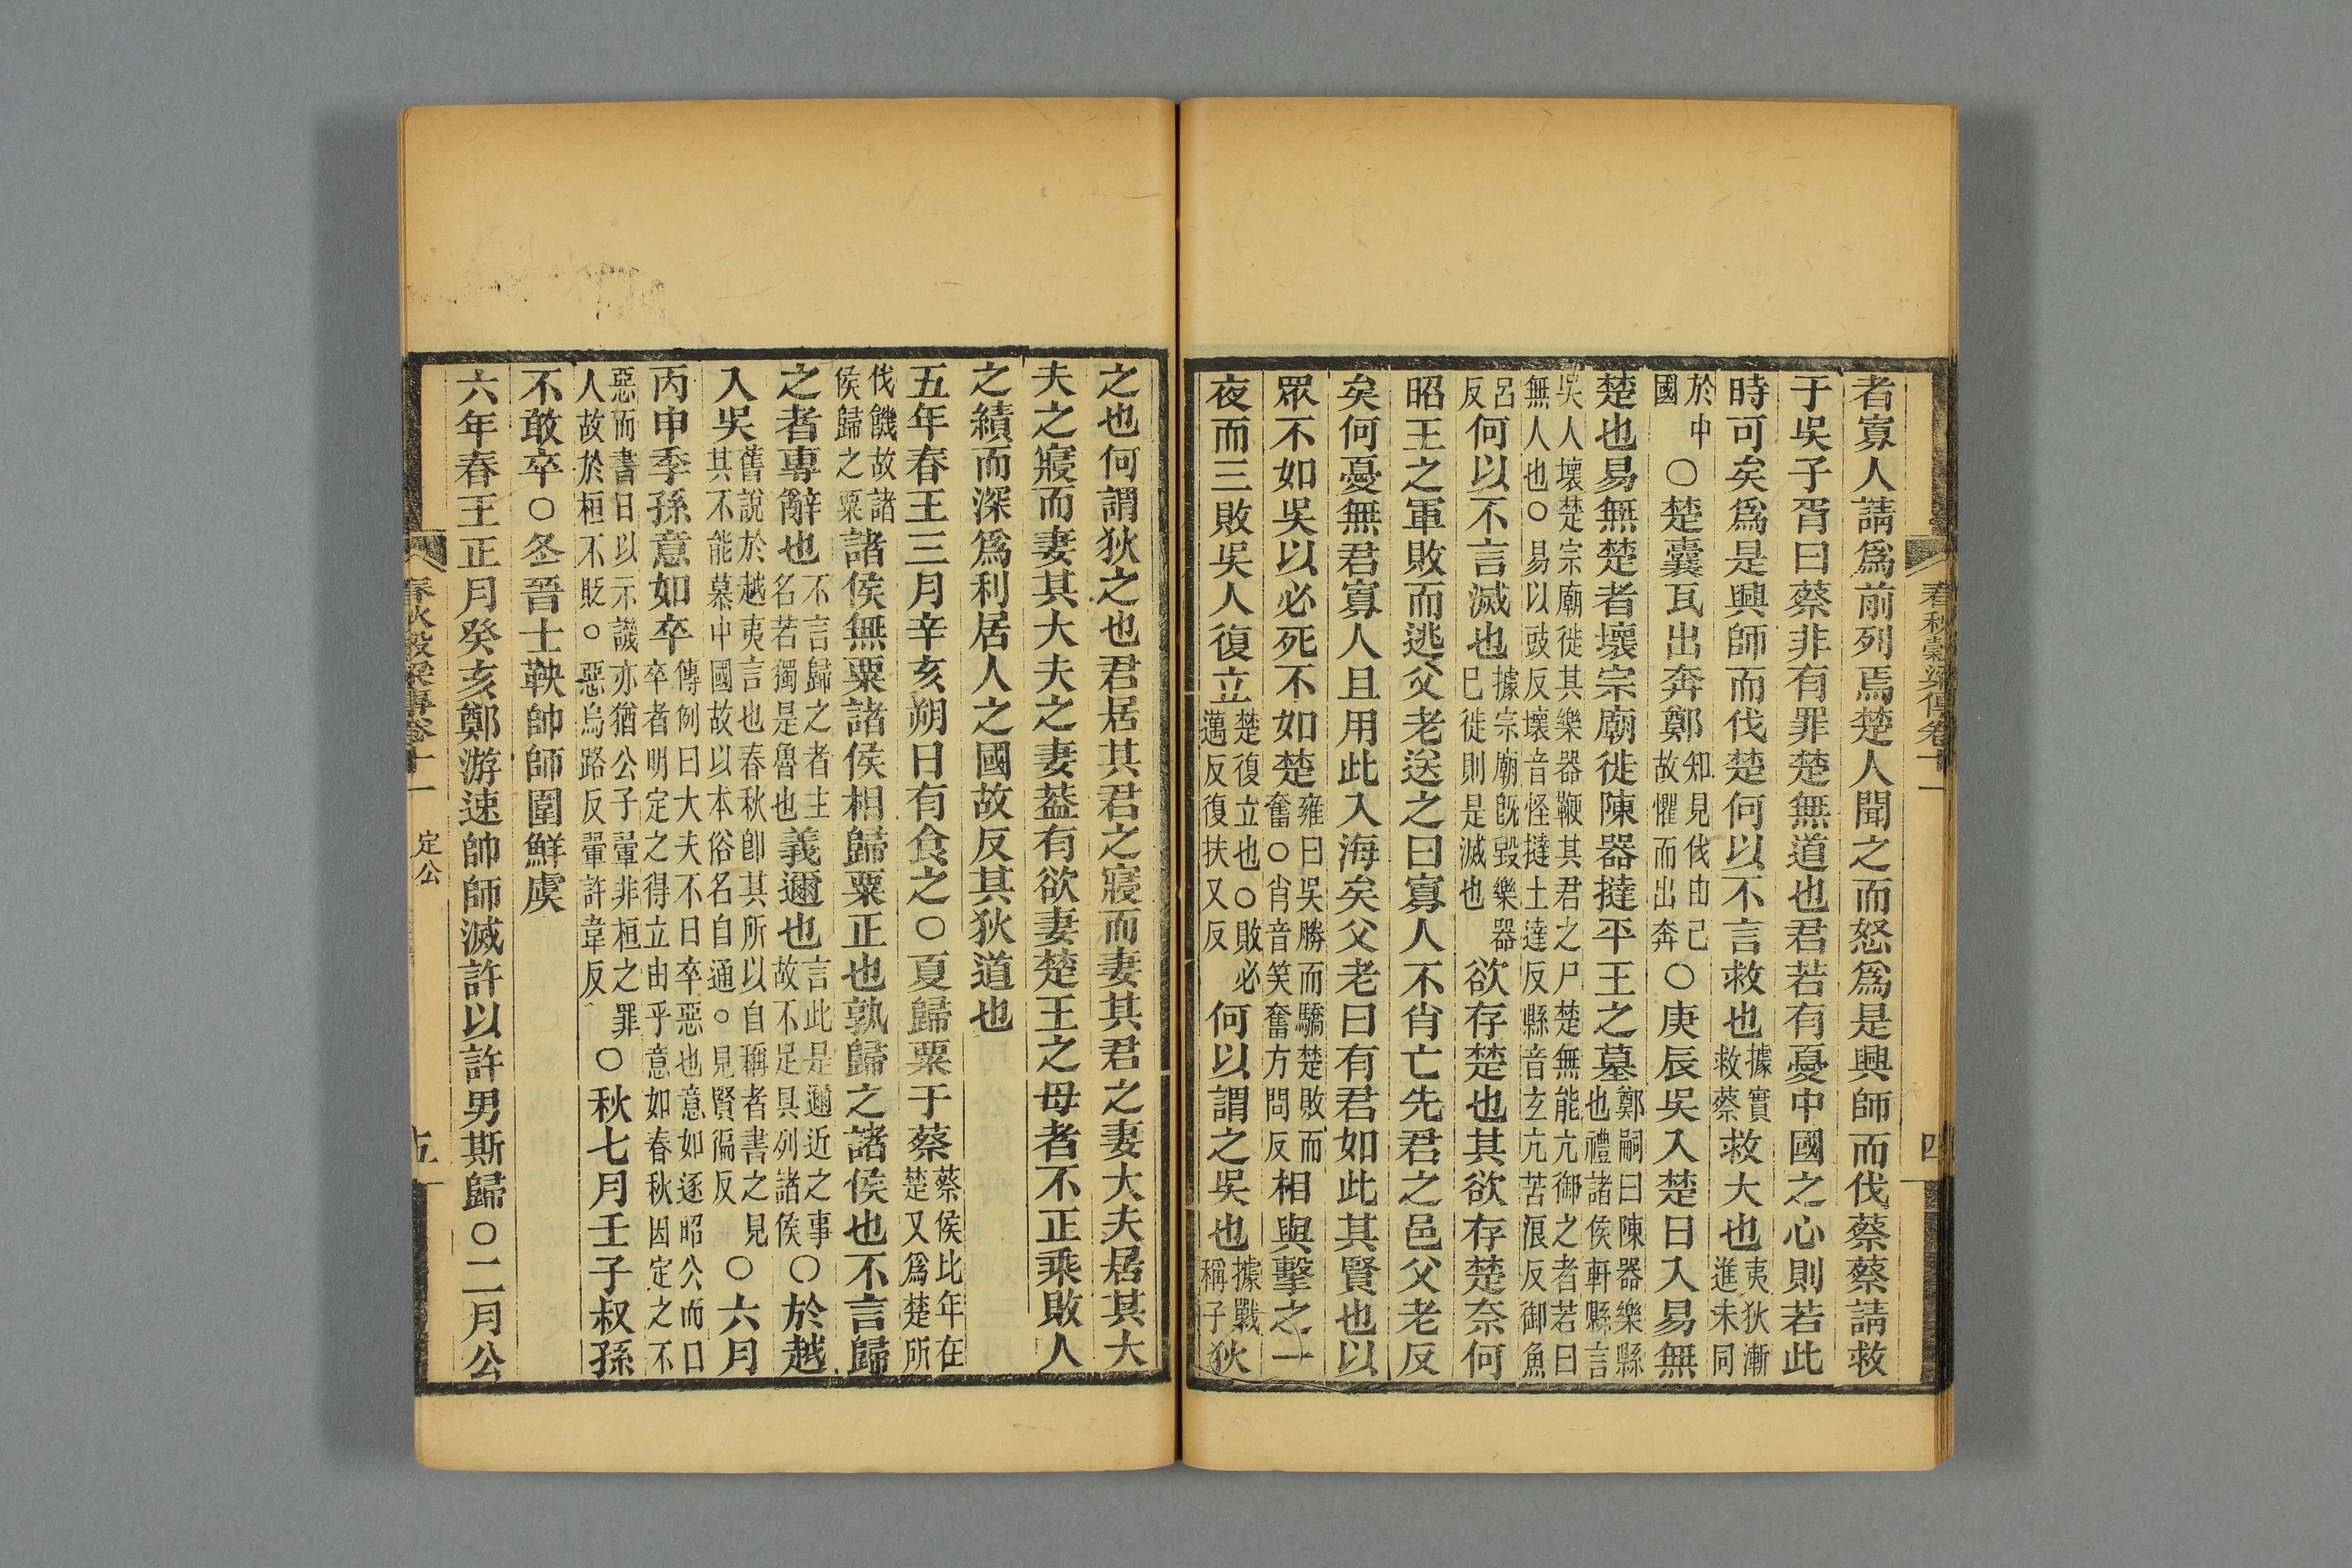 春秋穀梁傳卷十一
四
者寡人請爲前列焉楚人聞之而怒爲是興師而伐蔡蔡請救
于吳子胥曰蔡非有罪楚無道也君若有憂中國之心則若此
時可矣爲是興師而伐楚何以不言救也據實救蔡救大也夷狄漸進未同
於中國○楚囊瓦出奔鄭知見伐由己故懼而出奔○庚辰吳入楚日入易無
楚也易無楚者壞宗廟徙陳器撻平王之墓鄭嗣曰陳器樂縣也禮諸侯軒縣言
吳人壞楚宗廟徙其樂器鞭其君之尸楚無能亢御之者若曰無人也○易以豉反壞音怪撻土達反縣音玄亢苦浪反御魚
呂反何以不言滅也據宗廟旣毀樂器已徙則是滅也欲存楚也其欲存楚奈何
昭王之軍敗而逃父老送之曰寡人不肖亡先君之邑父老反
矣何憂無君寡人且用此入海矣父老曰有君如此其賢也以
眾不如吳以必死不如楚雍曰吳勝而驕楚敗而奮○肖音笑奮方問反相與擊之一
夜而三敗吳人復立楚復立也○敗必邁反復扶又反何以謂之吳也據戰稱子狄
之也何謂狄之也君居其君之寢而妻其君之妻大夫居其大
夫之寢而妻其大夫之妻蓋有欲妻楚王之母者不正乘敗人
之績而深爲利居人之國故反其狄道也
五年春王三月辛亥朔日有食之○夏歸粟于蔡蔡侯比年在楚又爲楚所
伐饑故諸侯歸之粟諸侯無粟諸侯相歸粟正也孰歸之諸侯也不言歸
之者專辭也不言歸之者主名若獨是魯也義邇也言此是邇近之事故不足具列諸侯○於越
入吳舊說於越夷言也春秋卽其所以自稱者書之見其不能慕中國故以本俗名自通○見賢徧反○六月
丙申季孫意如卒傳例曰大夫不日卒惡也意如逐昭公而日卒者明定之得立由乎意如春秋因定之不
惡而書日以示譏亦猶公子翬非桓之罪人故於桓不貶○惡烏路反翬許韋反○秋七月壬子叔孫
不敢卒○冬晉士鞅帥師圍鮮虞
六年春王正月癸亥鄭游速帥師滅許以許男斯歸○二月公
春秋穀梁傳卷十一
定公
五